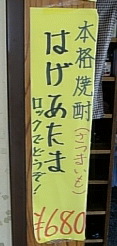 本格焼酎(さつまいも)
はげあたま
ロックでどうぞ!
¥680